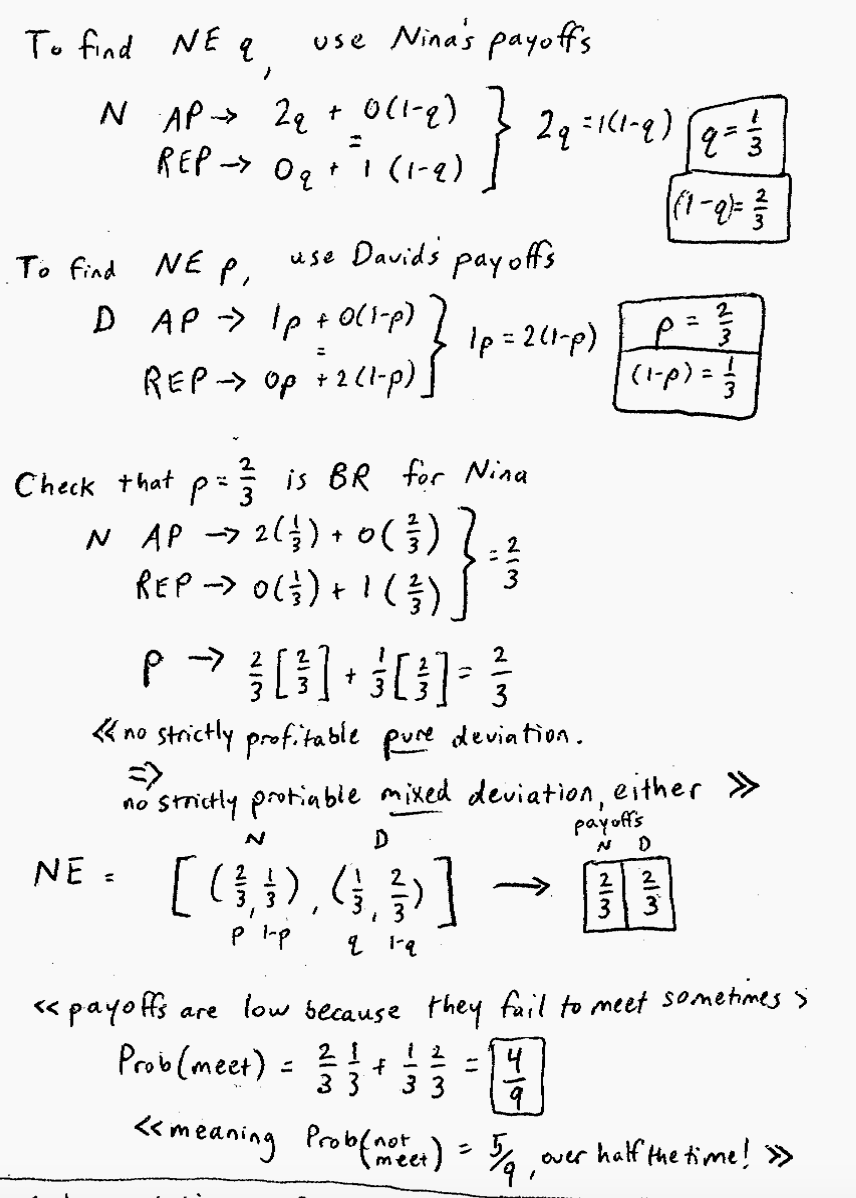 To find NE q, use Nina's payoffs
N AP → 2q + 0(1-q) } 2q = 1(1-q) q = 1/3
=
REP → 0q + 1(1-q)
(1-q) = 2/3
To find NE p, use David's payoffs
D AP → 1p + 0(1-p) } 1p = 2(1-p) p = 2/3
=
REP → 0p + 2(1-p) (1-p) = 1/3
Check that p = 2/3 is BR for Nina
N AP → 2(1/3) + 0(2/3) } = 2/3
REP → 0(1/3) + 1(2/3)
p → 2/3[2/3] + 1/3[2/3] = 2/3
<< no strictly profitable pure deviation.
⇒
no strictly protiable mixed deviation, either >>
payoffs
N D N D
NE = [(2/3, 1/3), (1/3, 2/3)] → 2/3 | 2/3
p 1-p q 1-q
<< payoffs are low because they fail to meet sometimes >
Prob(meet) = 2/3 1/3 + 1/3 2/3 = 4/9
<< meaning Prob(not meet) = 5/9, over half the time! >>